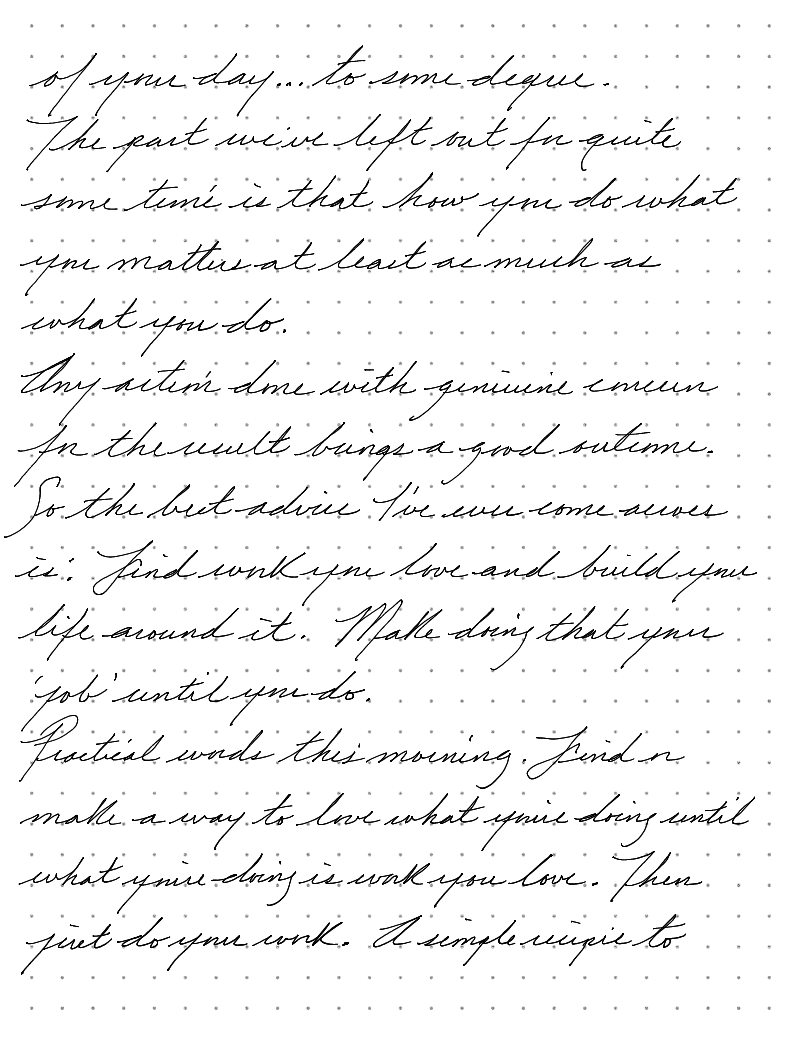 of your day... to some degree.
The part we've left out for quite
some time is that how you do what
you matters at least as much as
what you do.
Any action done with genuine concern
for the result brings a good outcome.
So the best advice I've ever come across
is: Find work you love and build your
life around it. Make doing that your
'job' until you do.
Practical words this morning. Find or
make a way to love what you're doing until
what you're doing is work you love. Then
just do your work. A simple recipe to